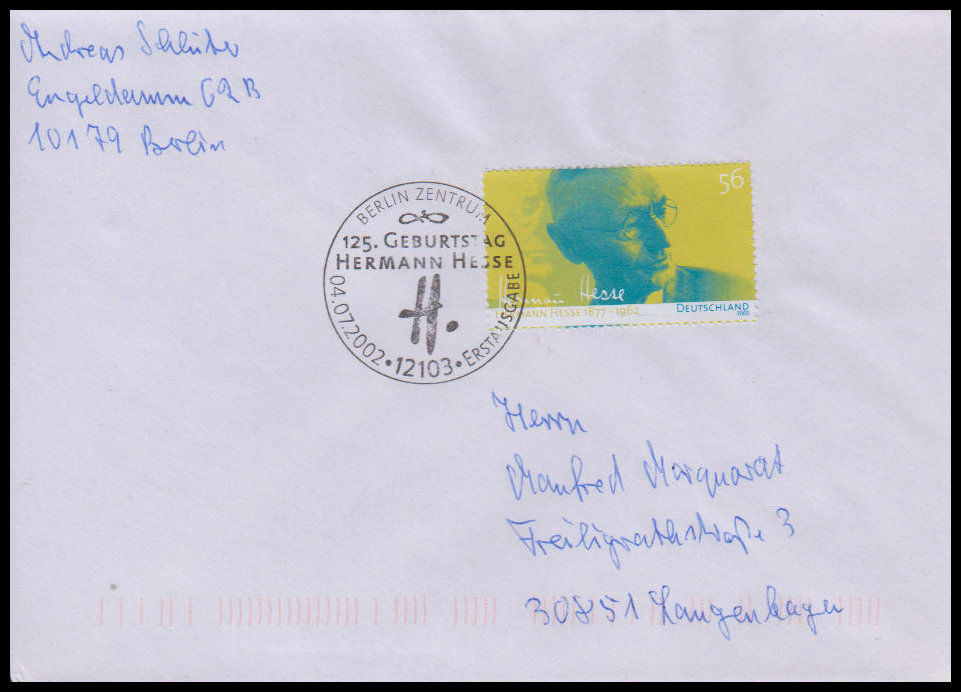 Andreas Schlüter
Engeldamm 62B
10179 Berlin
BERLIN ZENTRUM
125. GEBURTSTAG
HERMANN HESSE
H.
04.07.2002 • 12103 • ERSTAUSGABE
56
Hermann Hesse
HERMANN HESSE 1877 · 1962
DEUTSCHLAND
2002
Herrn
Manfred Marquardt
Freiligrathstraße 3
30851 Langenhagen